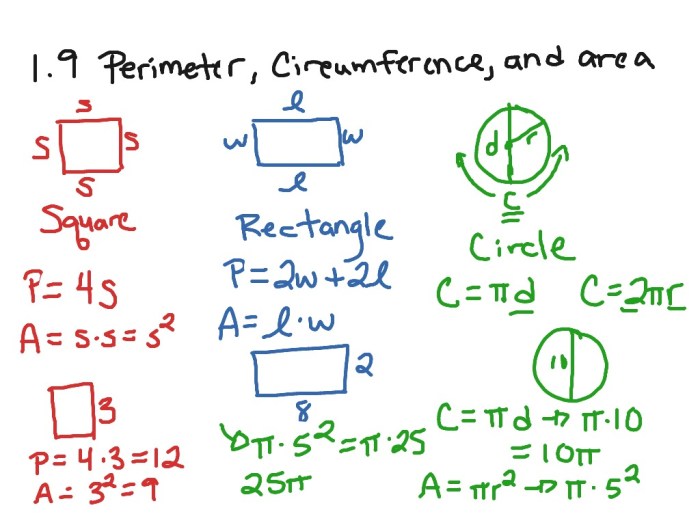 1.9 Perimeter, Circumference, and area
s
s s
s
Square
P = 4s
A = s·s = s²
3
P = 4·3 = 12
A = 3² = 9
l
w w
l
Rectangle
P = 2w + 2l
A = l·w
2
8
d r
C
Circle
C = πd C = 2πr
10
C = πd → π·10
= 10π
A = πr² → π·5²
→ π·5² = π·25
25π